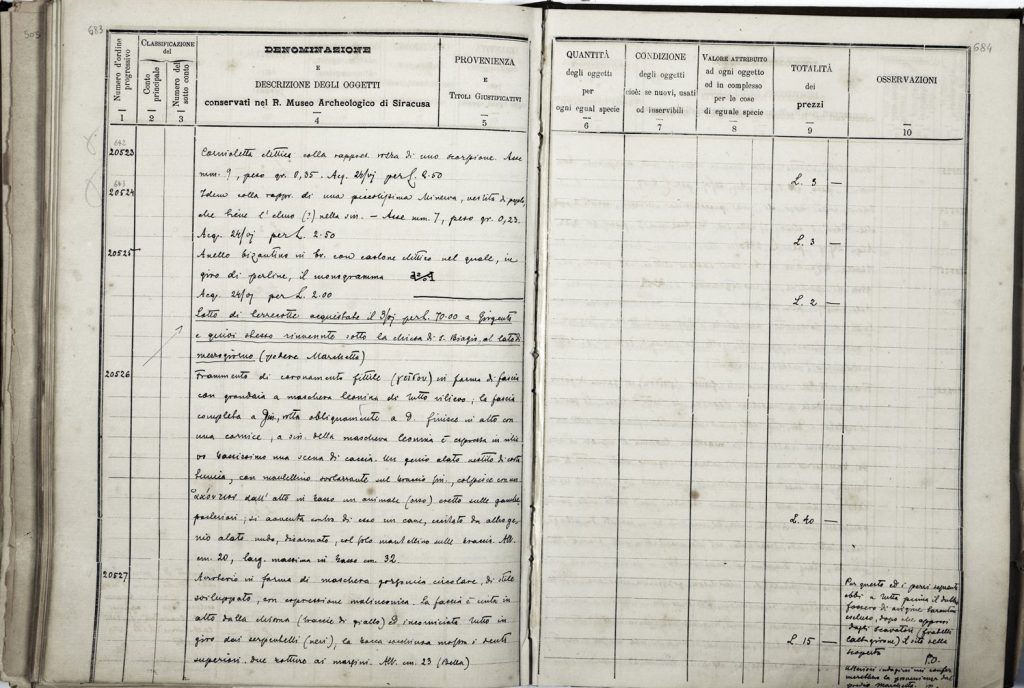 505
683
Numero d'ordine progressivo
CLASSIFICAZIONE
del
Conto principale
Numero del sotto conto
DENOMINAZIONE
E
DESCRIZIONE DEGLI OGGETTI
conservati nel R. Museo Archeologico di Siracusa
PROVENIENZA
E
TITOLI GIUSTIFICATIVI
1 2 3 4 5
642
20523 Cornioletta elittica colla rappres. rozza di uno scorpione. Asse
mm. 9, peso gr. 0,35. Acq. 24/VI per £. 2.50
643
20524 Idem colla rappr. di una piccolissima Minerva, vestita di peplo,
che tiene l'elmo (?) nella sin. — Asse mm. 7, peso gr. 0,23.
Acq. 24/VI per £. 2.50
20525 Anello bizantino in br. con castone elittico nel quale, in
giro di perline, il monogramma
Acq. 24/VI per £. 2.00
Lotto di terrecotte acquistate il 3/VI per £. 70.00 a Girgenti
e quivi stesso rinvenute sotto la chiesa di S. Biagio, al lato di
mezzogiorno (podere Marchetta)
20526 Frammento di coronamento fittile (γεῖσον) in forma di fascia
con grondaia a maschera leonina di tutto rilievo; la fascia
completa a sin., rotta obliquamente a d. finisce in alto con
una cornice, a sin. della maschera leonina è espressa in rilie
vo bassissimo una scena di caccia. Un genio alato vestito di corta
tunica, con mantellino svolazzante sul braccio sin., colpisce con un
ἀκόντιον dall'alto in basso un animale (orso) eretto sulle gambe
posteriori; si avventa contro di esso un cane, incitato da altro ge
nio alato nudo, disarmato, col solo mantellino sulle braccia. Alt.
cm. 20, larg. massima in basso cm. 32.
20527 Acroterio in forma di maschera gorgonica circolare, di stile
sviluppato, con espressione malinconica. La faccia è cinta in
alto dalla chioma (traccie di giallo) ed incorniciata tutto in
giro dai serpentelli (neri), la bocca socchiusa mostra i denti
superiori. Due rotture ai margini. Alt. cm. 23 (Bella)
684
QUANTITÀ
degli oggetti
per
ogni egual specie
CONDIZIONE
degli oggetti
cioè: se nuovi, usati
od inservibili
VALORE ATTRIBUITO
ad ogni oggetto
od in complesso
per le cose
di eguale specie
TOTALITÀ
dei
prezzi
OSSERVAZIONI
6 7 8 9 10
£. 3 —
£. 3 —
£. 2 —
£. 40 —
£. 15 —
Per questo ed i pezzi seguenti
ebbi a tutta prima il dubbio
fossero di origine tarantina
escluso, dopo che appresi
dagli scavatori (fratelli
Caltagirone) il sito della
scoperta P.O.
ulteriori indagini mi confer
merebbero la provenienza dal
podere Marchetta.